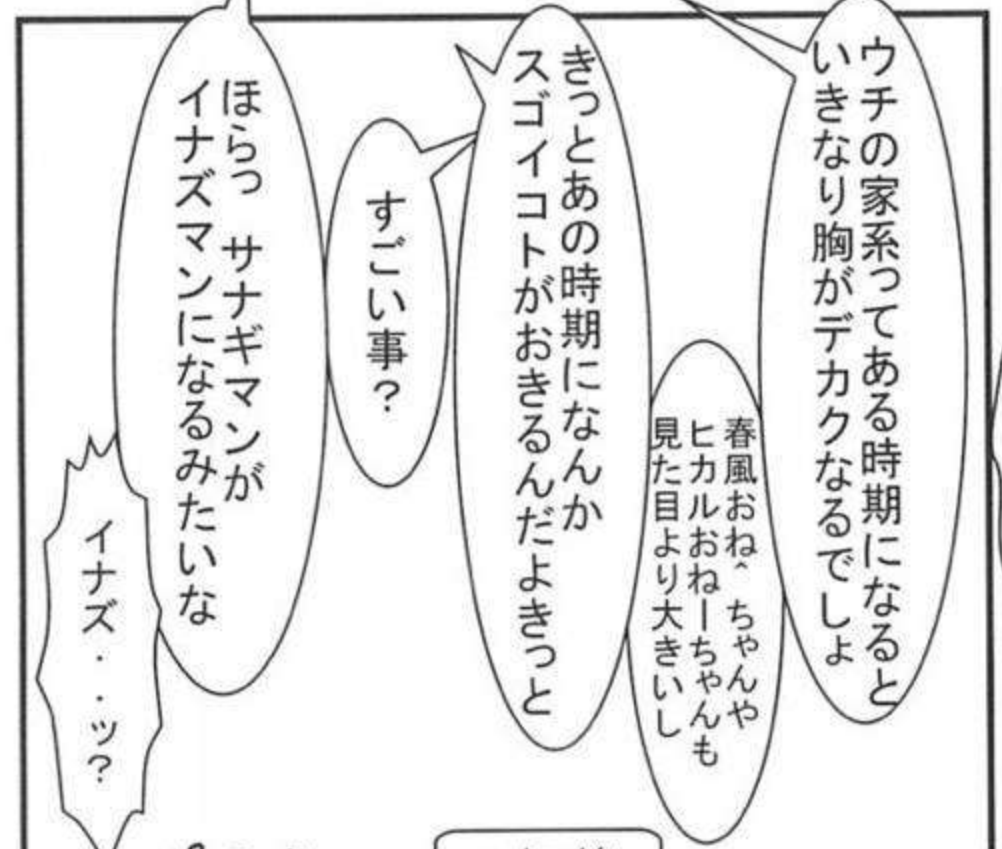 ウチの家系ってある時期になると
いきなり胸がデカクなるでしょ
春風おね^ ちゃんや
ヒカルおねーちゃんも
見た目より大きいし
きっとあの時期になんか
スゴイコトがおきるんだよきっと
すごい事？
ほらっ サナギマンが
イナズマンになるみたいな
イナズ・・ッ？